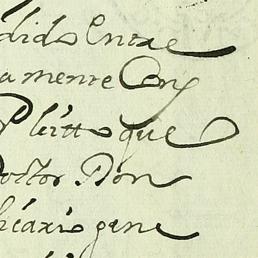 dido Entre
amente Con
Pleitto que
Doctor Don
bicario gene